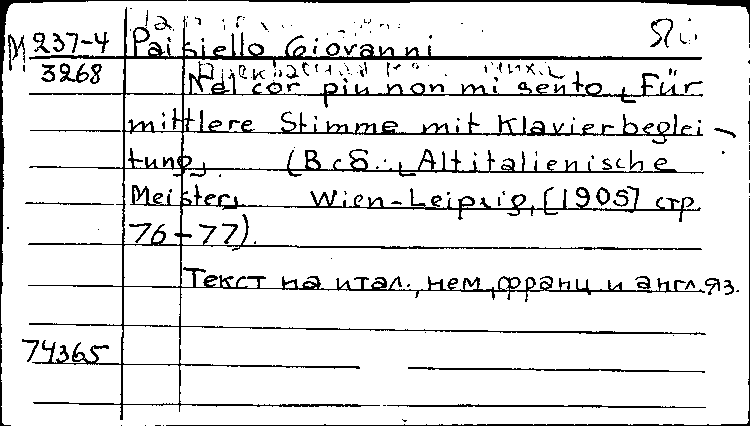 М 237-4 Paisiello Giovanni
3268 Nel cor piu non mi sento „Für
mittlere Stimme mit Klavierbeglei-
tung„ (В сб.: „Altitalienische
Meister„ Wien-Leipzig, [1905] стр
76-77).
Текст на итал., нем, франц и англ. яз.
74365